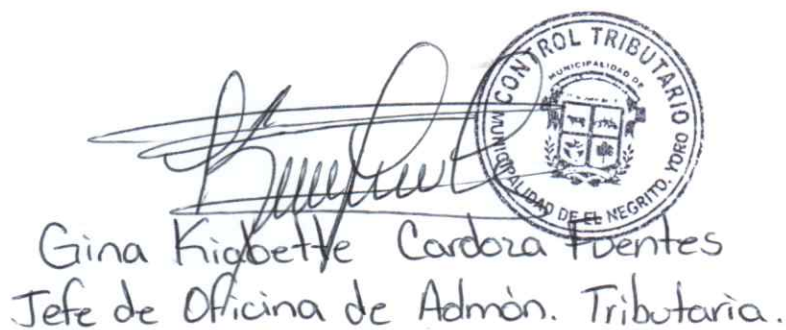 CONTROL TRIBUTARIO
MUNICIPALIDAD DE
MUNICIPALIDAD DE EL NEGRITO, YORO
Gina Kiabette Cardoza Fuentes
Jefe de Oficina de Admón. Tributaria.